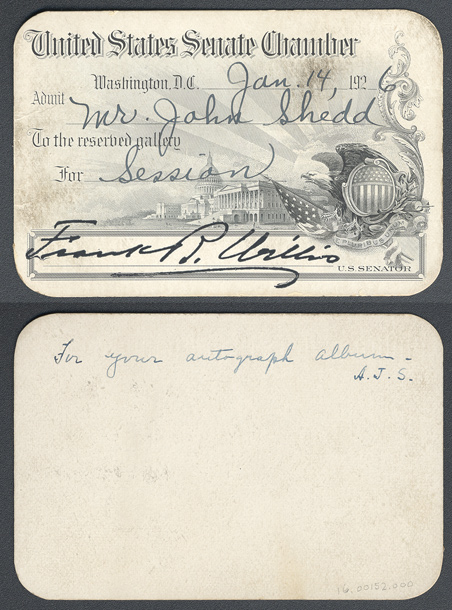 United States Senate Chamber
Washington, D.C. Jan. 14, 1926
Admit Mr. John Shedd
To the reserved gallery
For Session
Frank B. Willis
U.S. SENATOR
For your autograph album -
A. J. S.
16.00152.000